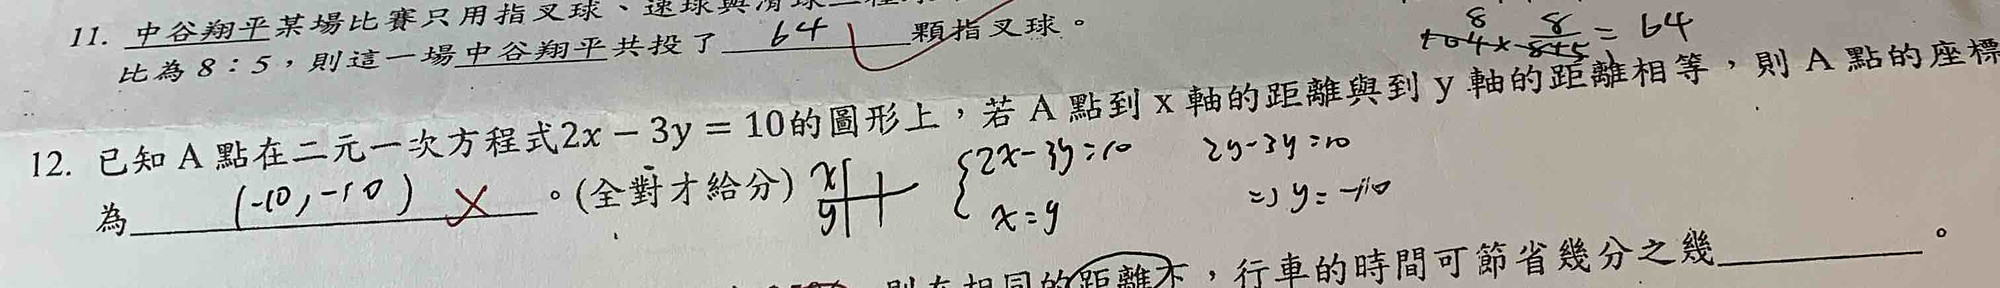 11. 中谷翔平某場比賽只用指叉球、速球與滑球
比為 8:5,則這一場中谷翔平共投了 64 顆指叉球。
8
104 × 8/(8+5) = 64
12. 已知 A 點在二元一次方程式2x − 3y = 10的圖形上,若 A 點到 x 軸的距離與到 y 軸的距離相等,則 A 點的座標
為 (-10, -10) 。(全對才給分)
x
y
{2x-3y=10
x=y
2y-3y=10
=> y=-10
則在相同的距離下,行車的時間可節省幾分之幾 。